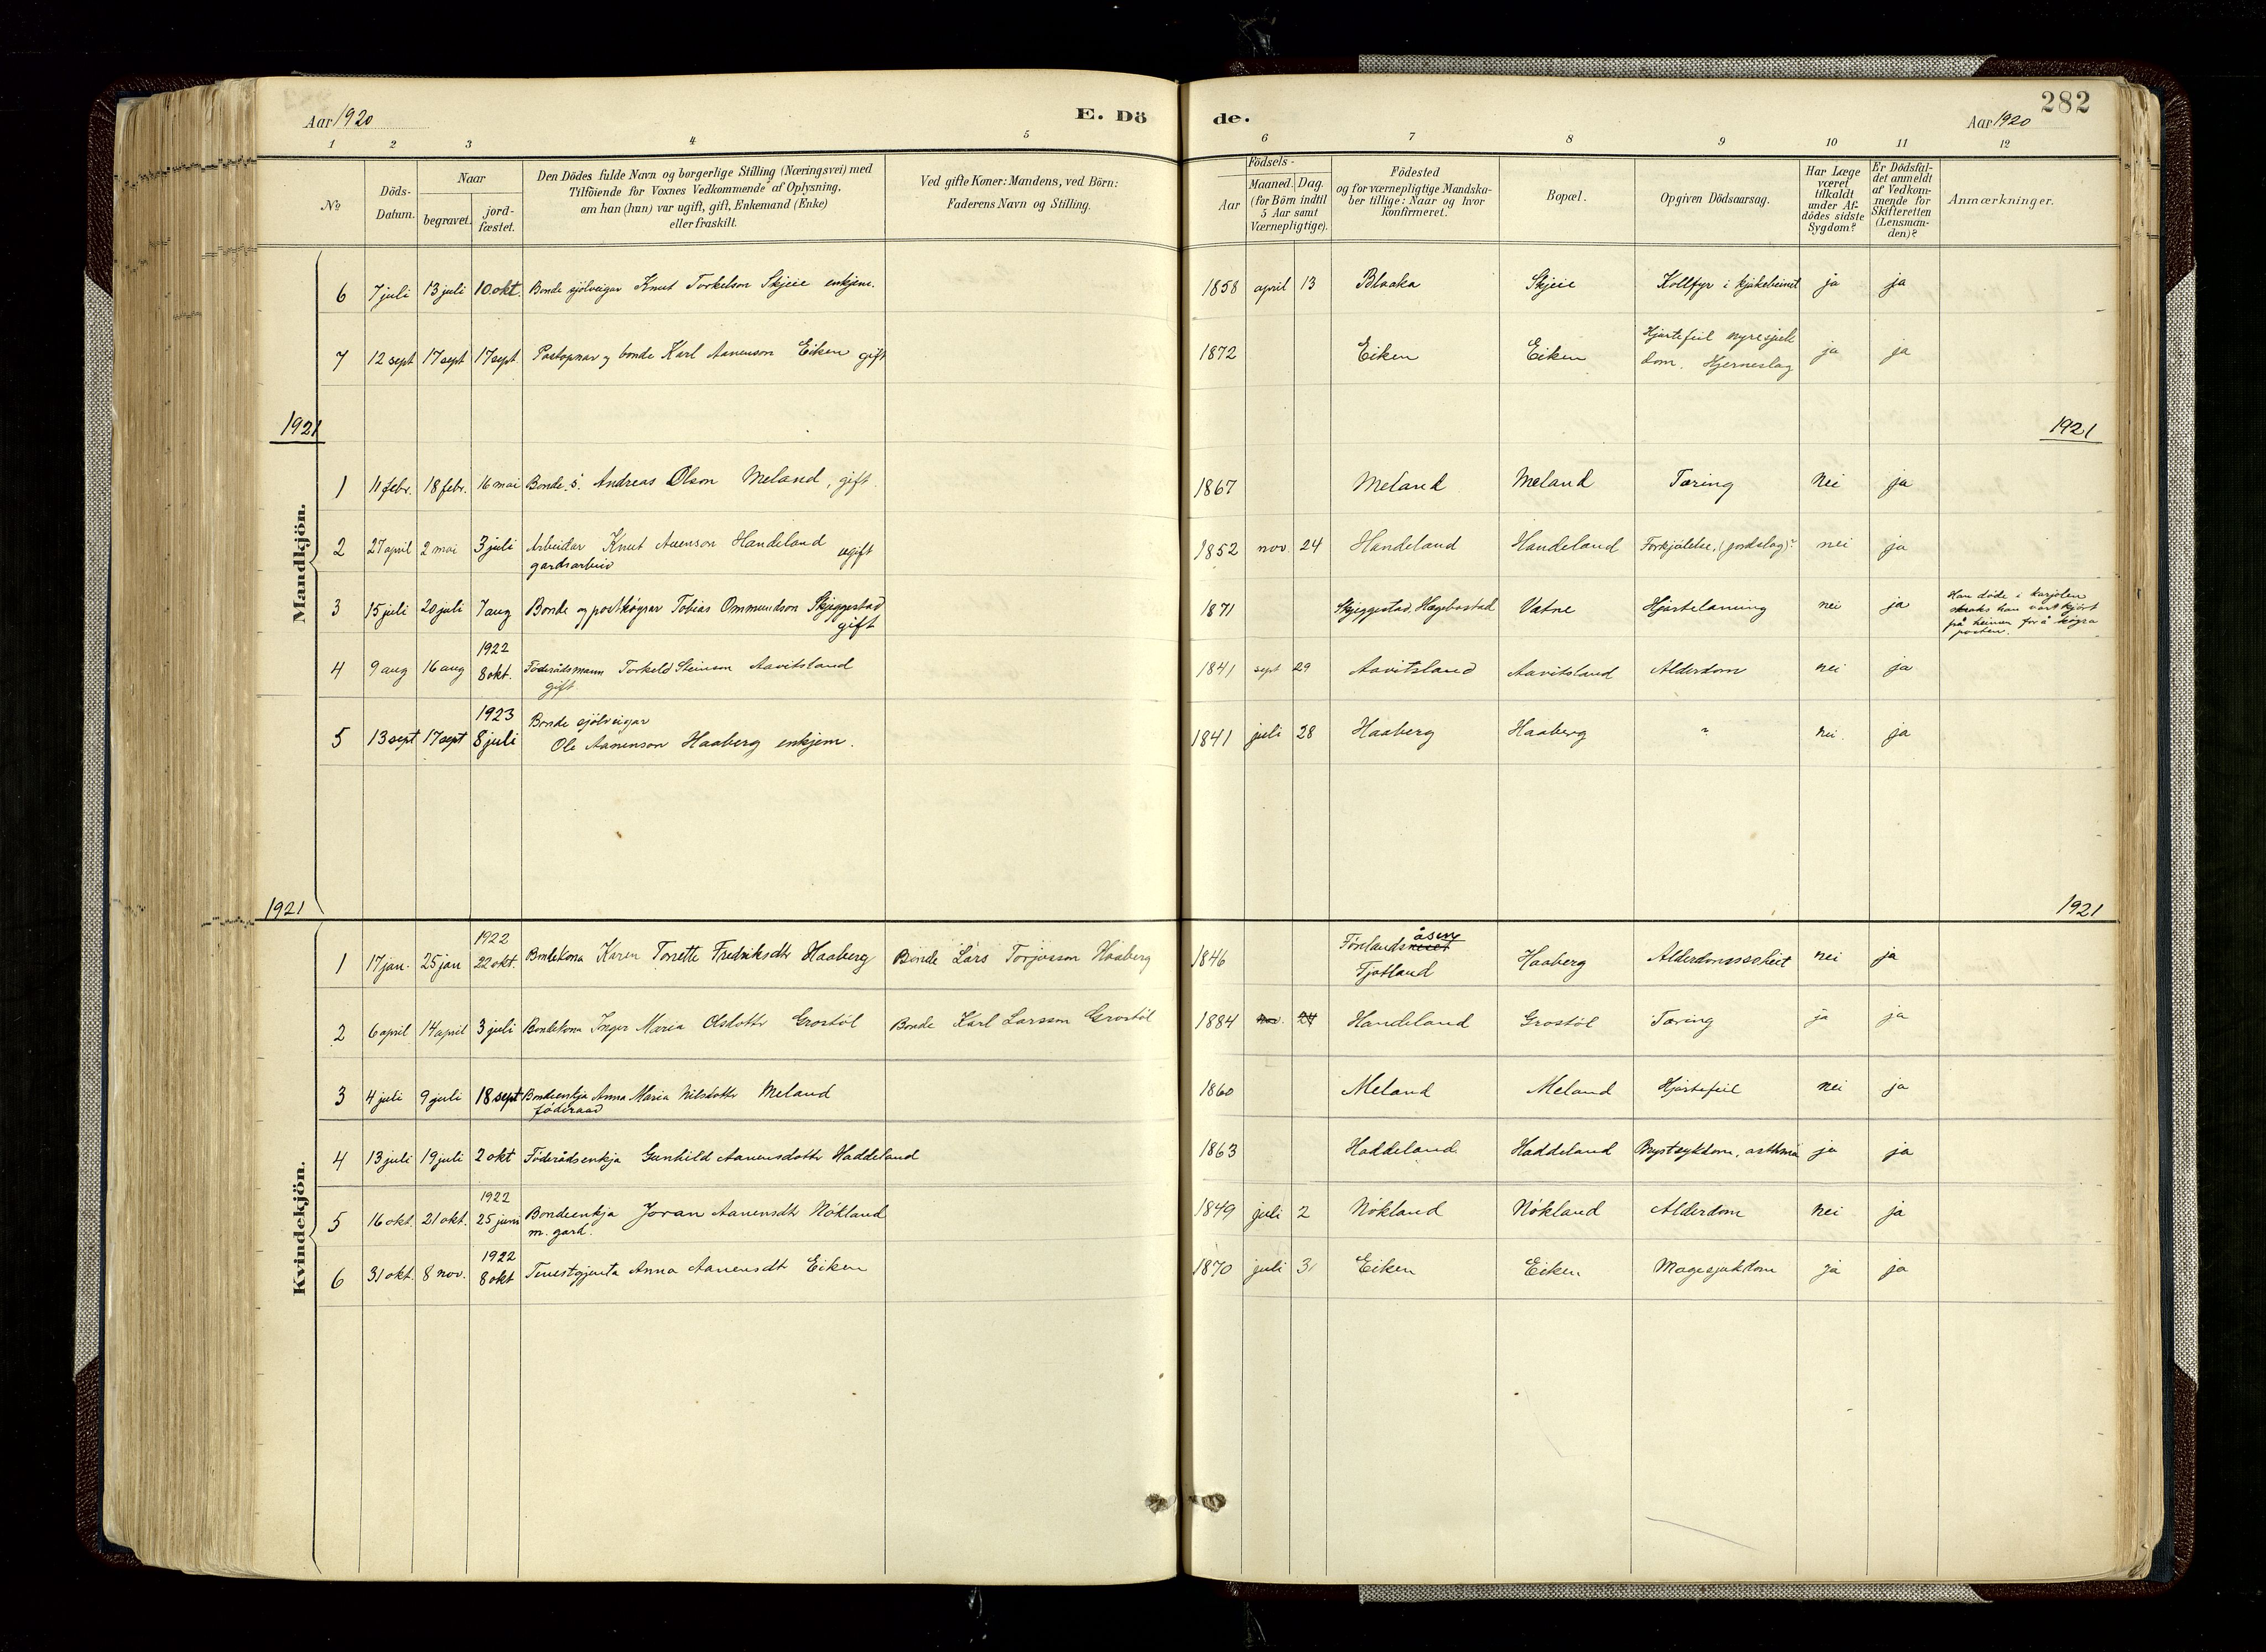 Aar 1920
E. Dö
de.
Aar 1920
282
1 2 3 4 5 6 7 8 9 10 11 12
No
Döds-
Datum.
Naar
begravet.
jord-
fæstet.
Den Dödes fulde Navn og borgerlige Stilling (Næringsvei) med
Tilföiende for Voxnes Vedkommende af Oplysning,
om han (hun) var ugift, gift, Enkemand (Enke)
eller fraskilt.
Ved gifte Koner: Mandens, ved Börn:
Faderens Navn og Stilling.
Födsels-
Aar
Maaned. Dag.
(for Börn indtil
5 Aar samt
Værnepligtige).
Födested
og for værnepligtige Mandska-
ber tillige: Naar og hvor
konfirmeret.
Bopæl.
Opgiven Dödsaarsag.
Har Læge
været
tilkaldt
under Af-
dödes sidste
Sygdom?
Er Dödsfal-
det anmeldt
af Vedkom-
mende for
Skifteretten
(Lensman-
den)?
Anmærkninger.
Mandkjön.
6 7 juli 13 juli 10. okt. Bonde sjölveigar Knut Torkelson Skjeie enkjem. 1858 april 13 Blaaka Skjeie Kollfyr i kjakebeinet ja ja
7 12 sept 17 sept 17 sept Postopnar og bonde Karl Aanenson Eiken gift 1872 Eiken Eiken Hjartefeil nyresjuk
dom. Hjerneslag ja ja
1921
1921
1 11 febr. 18 febr. 16 mai Bonde. s. Andreas Olson Meland, gift. 1867 Meland Meland Tæring nei ja
2 27 april 2 mai 3 juli Arbeidar Knut Aanenson Handeland ugift
gardsarbeid
1852 nov. 24 Handeland Handeland Forkjölelse. (jordslag)? nei ja
3 15 juli 20 juli 7 aug Bonde og postkøyrar Tobias Ommundson Skjeggestad
gift
1871 Skjeggestad, Hægebostad Vatne Hjartelaming nei ja
Han døde i karjolen
straks han vart kjört
på heimen for å köyra
posten.
1922
4 9 aug 16 aug 8 okt. Föderådsmann Torkeld Steinson Aavitsland
gift
1841 sept 29 Aavitsland Aavitsland Alderdom nei ja
1923
5 13 sept 17 sept 8 juli Bonde sjölveigar
Ole Aanenson Haaberg enkjem.
1841 juli 28 Haaberg Haaberg " nei. ja
1921
1921
Kvindekjön.
1922
1 17 jan. 25 jan 22 okt. Bondekona Karen Torette Fredriksdtr Haaberg Bonde Lars Torjusson Haaberg 1846 åsen
Fjotland Haaberg Alderdomssvekeit nei ja
2 6 april 14 april 3 juli Bondekona Inger Maria Olsdottr Grostöl Bonde Karl Larsson Grostöl 1884 nov. 24 Handeland Grostöl Tæring ja ja
3 4 juli 9 juli 18 sept Bondeenkja Anna Maria Nilsdottr Meland
föderaad
1860 Meland Meland Hjartefeil nei ja
4 13 juli 19 juli 2 okt Föderådsenkja Gunhild Aanensdottr Haddeland 1863 Haddeland Haddeland Brystsykdom, asthma ja ja
1922
5 16 okt. 21 okt. 25 juni Bondeenkja Joran Aanensdtr Nökland
m. gard.
1849 juli 2 Nökland Nökland Alderdom nei ja
1922
6 31 okt. 8 nov. 8 okt Tenestgjenta Anna Aanensdtr Eiken 1870 juli 31 Eiken Eiken Magesjukdom ja ja